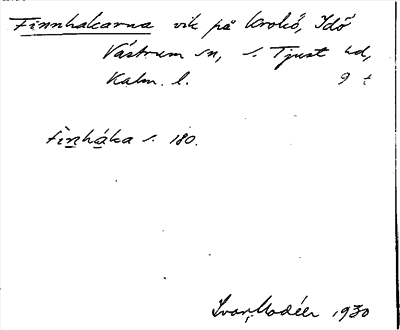 Finnhakarna vik på Krokö, Idö
Västrum sn, s. Tjust hd,
Kalm. l. 9 t
finhåka s. 180.
Ivar Modéer 1930